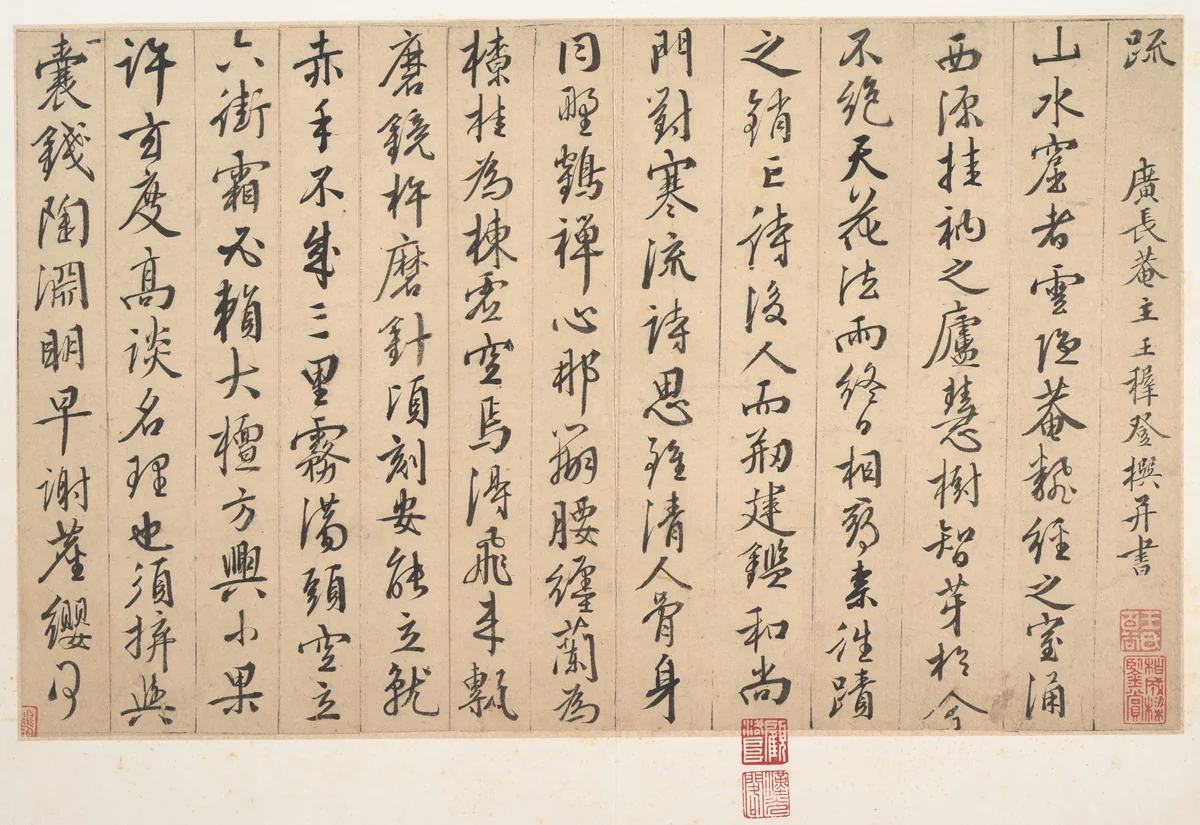 疏 廣長菴主王穉登撰并書
山水窟者雲隱菴翻經之室涌
西源挂衲之廬慧樹智芽於今
不絕天花法雨終日相奈往蹟
之銷亡待後人而剏建鑑和尚
門對寒流詩思雖清人骨身
同野鶴禪心那腰纏蘭為
橑桂為棟虛空焉得飛來甎
磨鏡杵磨針頃刻安能立就
赤手不成三里霧滿頭空立
六街霜必賴大檀方興小果
許玄度高談名理也須拚與
一囊錢陶淵明早謝塵纓何